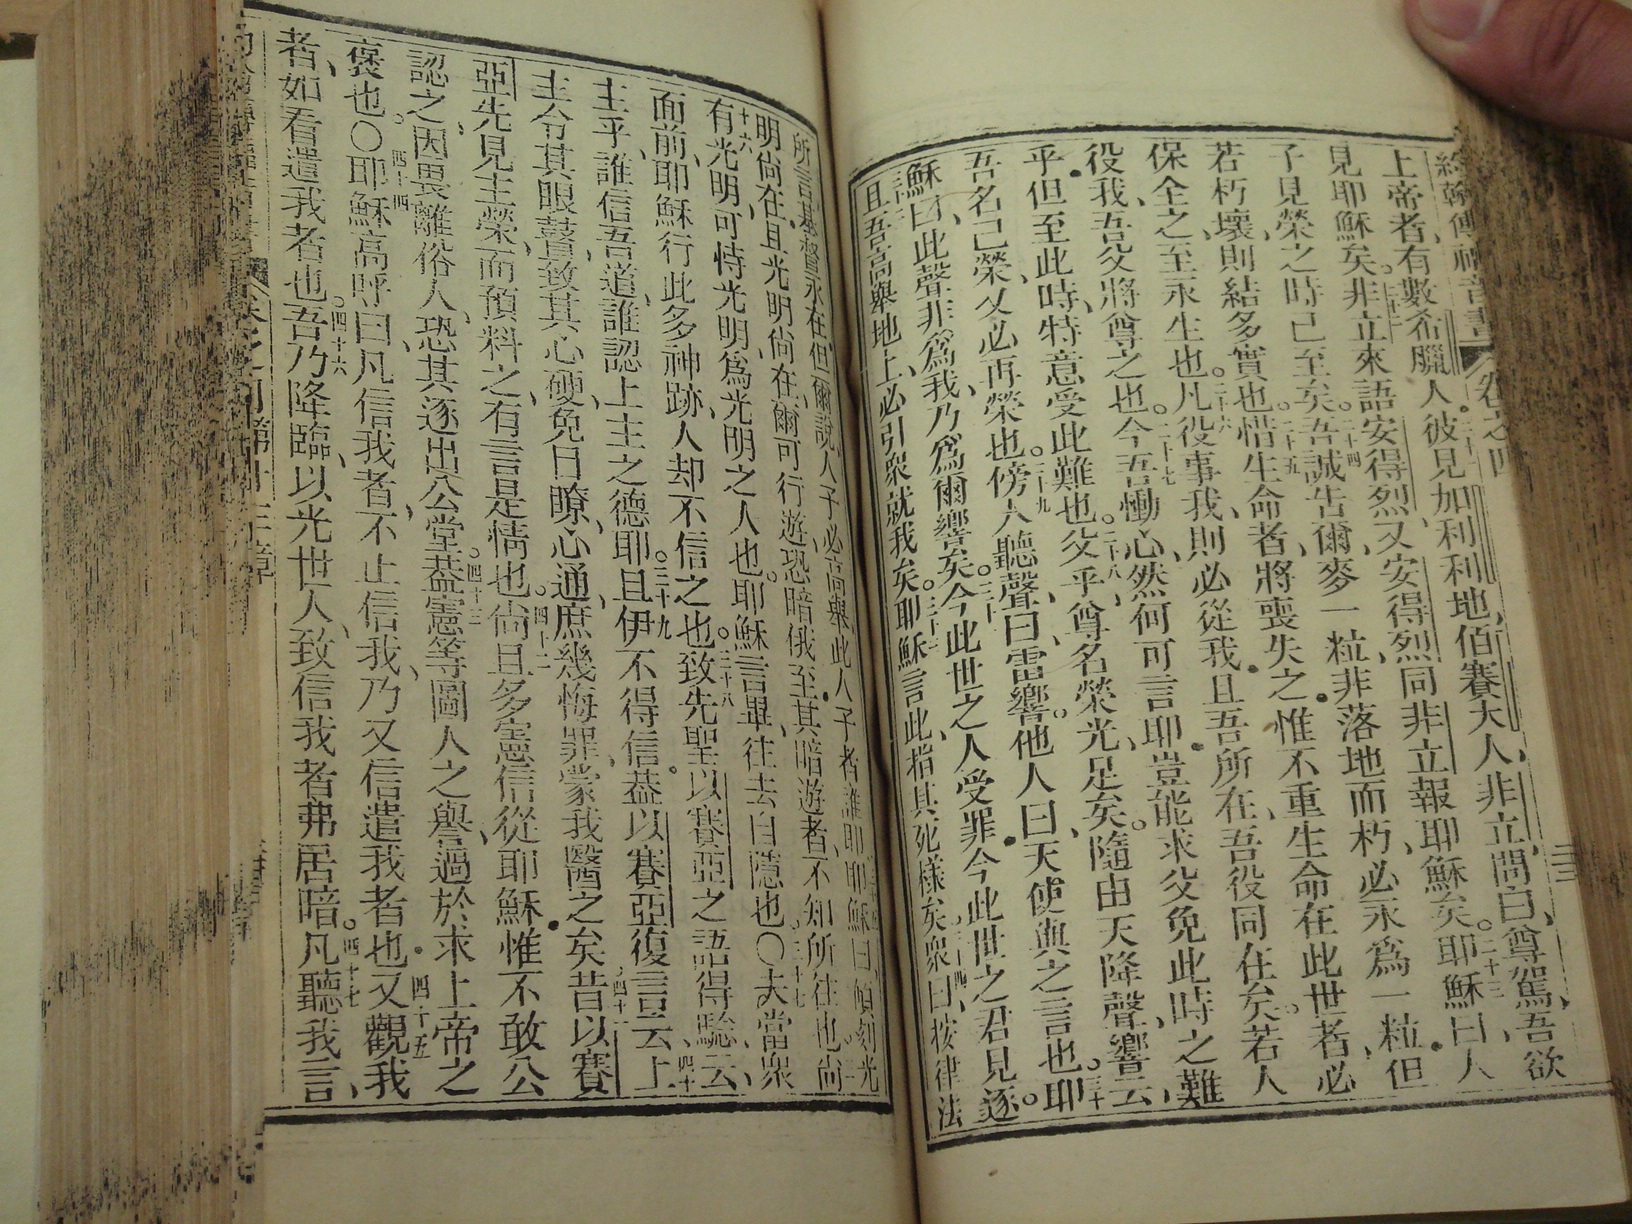 約翰傳福音書 卷之四
上帝者、有數希臘人。二十一彼見加利利地、伯賽大人、非立、問曰、尊駕、吾欲
見耶穌矣。二十二非立來語安得烈、又安得烈同非立報耶穌矣。二十三耶穌曰、人
子見榮之時已至矣。二十四吾誠告爾、麥一粒、非落地而朽、必永爲一粒、但
若朽壞、則結多實也。二十五惜生命者、將喪失之、惟不重生命在此世者、必
保全之至永生也。二十六凡役事我、則必從我、且吾所在、吾役同在矣。若人
役我、吾父將尊之也。二十七今吾慟心、然何可言耶、豈能求父免此時之難
乎、但至此時、特意受此難也。二十八父乎、尊名榮光、足矣。隨由天降聲響云、
吾名已榮、又必再榮也。二十九傍人聽聲、曰、雷響。他人曰、天使與之言也。三十耶
穌曰、此聲非爲我、乃爲爾響矣。三十一今此世之人受罪、今此世之君見逐。
三十二且吾高舉地上、必引衆就我矣。三十三耶穌言此、指其死樣矣。三十四衆曰、按律法
所言、基督永在、但爾說人子必高舉、此人子者誰耶。三十五耶穌曰、頃刻光
明尚在、且光明尚在、爾可行遊、恐暗俄至、其暗遊者、不知所往也。尚
三十六有光明、可恃光明、爲光明之人也。耶穌言畢、往去自隱也。〇三十七夫當衆
面前、耶穌行此多神跡、人却不信之也。三十八致先聖以賽亞之語得驗云、
主乎、誰信吾道、誰認上主之德耶。三十九且伊不得信、葢以賽亞復言云、四十上
主令其眼瞽、致其心硬、免目瞭、心通、庶幾悔罪、蒙我醫之矣。四十一昔以賽
亞先見主榮、而預料之、有言是情也。四十二尚且多憲信從耶穌、惟不敢公
認之、因畏離俗人、恐其逐出公堂。四十三葢憲等圖人之譽、過於求上帝之
褒也。〇四十四耶穌高呼曰、凡信我者、不止信我、乃又信遣我者也。四十五又觀我
者、如看遣我者也。四十六吾乃降臨、以光世人、致信我者弗居暗。四十七凡聽我言、